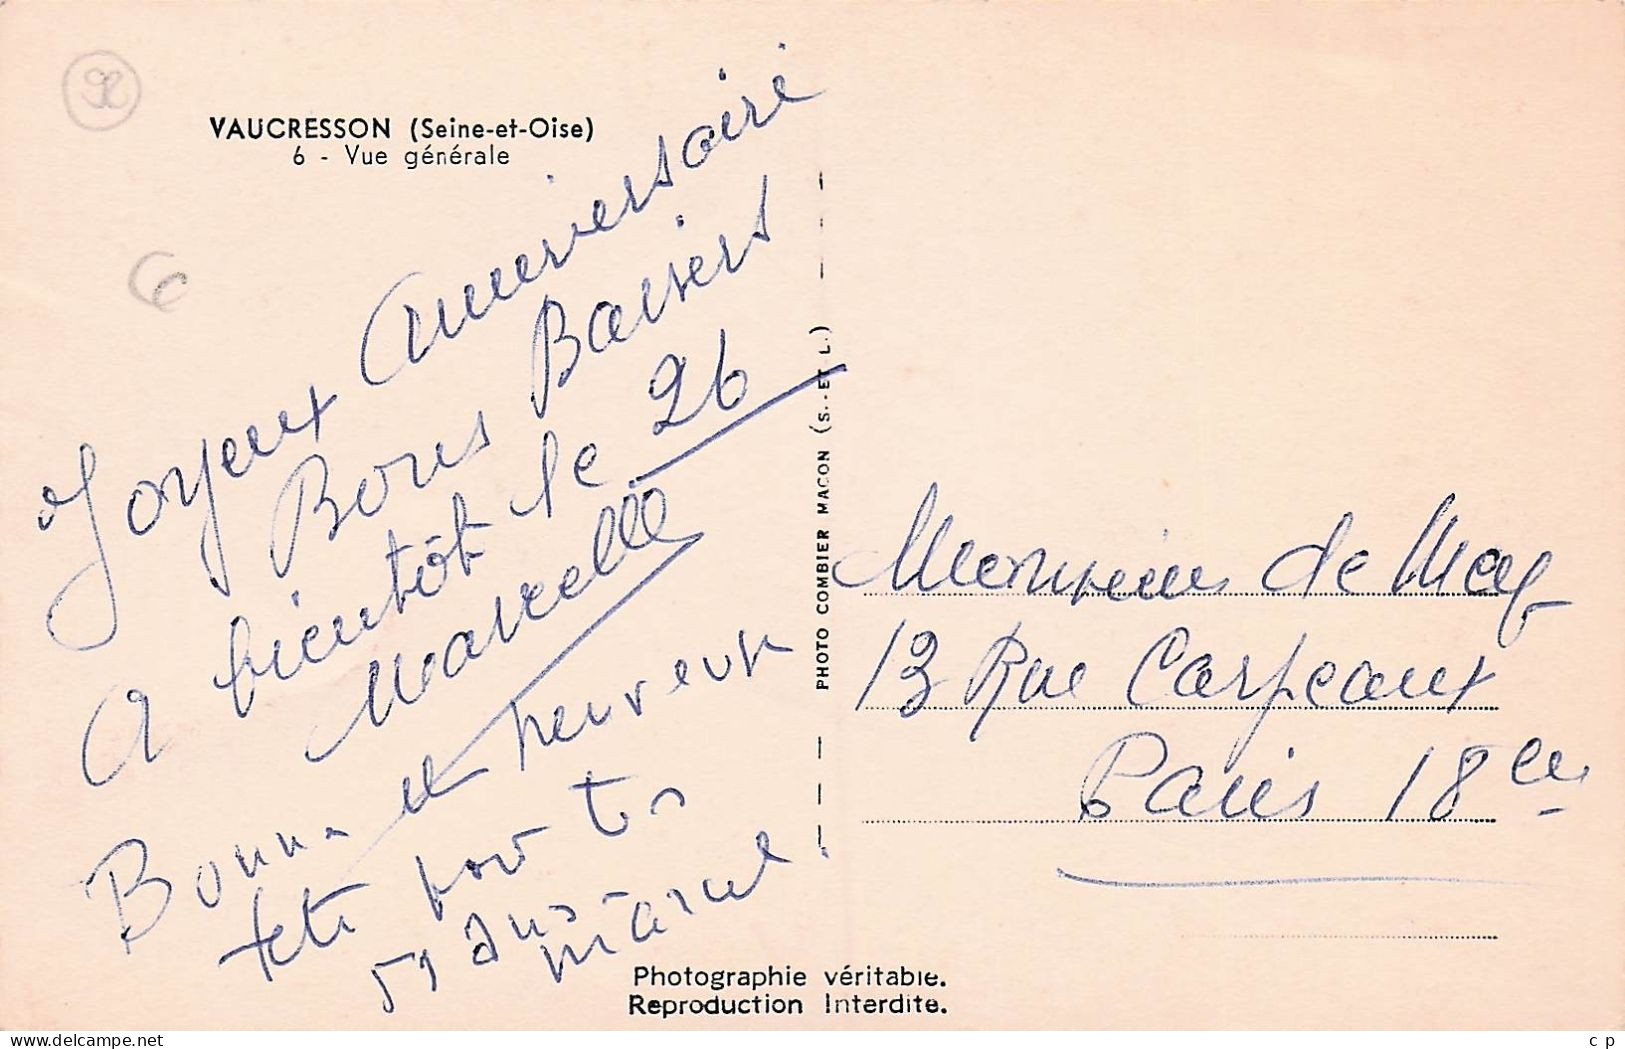 92
VAUCRESSON (Seine-et-Oise)
6 - Vue générale
6
Joyeux Anniversaire
Bons Baisers
A bientôt le 26
Marcelle
Bonne et heureuse
fete pour tes
59 ans
marcel.
PHOTO COMBIER MACON (S.-ET L.)
Monsieur de
13 Rue Carpeaux
Paris 18
Photographie véritable.
Reproduction Interdite.
www.delcampe.net
c p